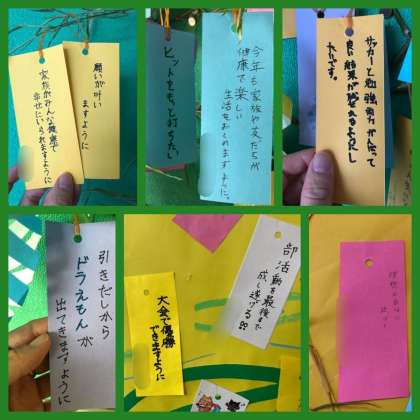 願いが叶い
ますように
家族がみんな健康で
幸せにいられますように
今年も家族や友だちが
健康で楽しい
生活をおくれますように。
ヒットをもっと打ちたい
サッカーと勉強両方がんばって
良い結果が残せるようにし
たいです。
引きだしから
ドラえもんが
出てきますように
大会で優勝
できますように
部活動を最後まで
成し遂げる